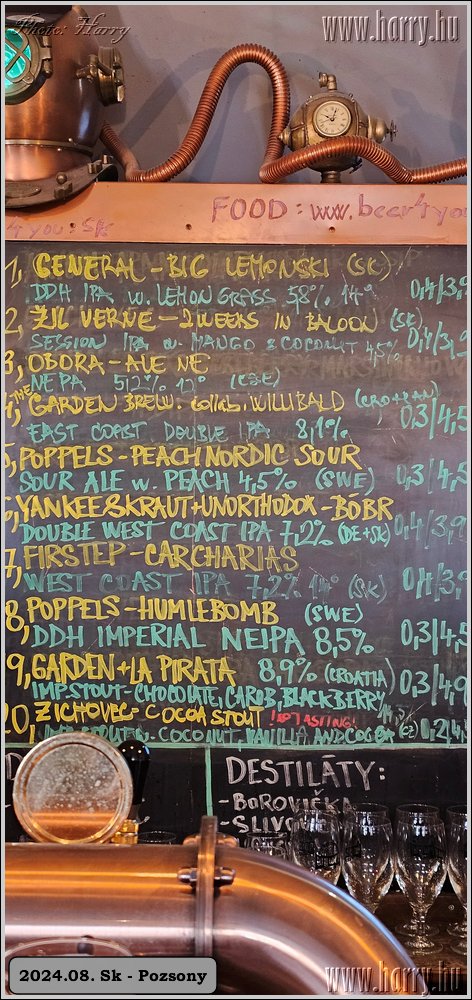 Photo: Harry
www.harry.hu
FOOD: www.beer4yo
4you.sk
1, GENERAL - BIG LEMONSKI (SK)
DDH IPA w. LEMON GRASS 5,8% 14° 0,4/3,9
2, ŽIL VERNE - 2 WEEKS IN BALOON (SK)
SESSION IPA w. MANGO & COCONUT 4,5% 0,4/3,
3, OBORA - ALE NE
NEPA 5,2% 12° (CZE)
4, THE GARDEN BREW. collab. WILLIBALD (CROATIAN)
EAST COAST DOUBLE IPA 8,1% 0,3/4,5
5, POPPELS - PEACH NORDIC SOUR
SOUR ALE w. PEACH 4,5% (SWE) 0,3/4,5
6, YANKEE & KRAUT + UNORTHODOX - BÓBR
DOUBLE WEST COAST IPA 7,2% (DE+SK) 0,4/3,9
7, FIRSTEP - CARCHARIAS
WEST COAST IPA 7,2% 14° (SK) 0,4/3,9
8, POPPELS - HUMLEBOMB (SWE)
DDH IMPERIAL NEIPA 8,5% 0,3/4,5
9, GARDEN + LA PIRATA 8,9% (CROATIA)
IMP. STOUT - CHOCOLATE, CAROB, BLACKBERRY 0,3/4,9
10, ZICHOVEC - COCOA STOUT !UPTASTING!
IMP. STOUT - COCONUT, VANILLA AND COCOA (CZ) 0,2/4,
DESTILÁTY:
- BOROVIČKA
- SLIVOV
2024.08. Sk - Pozsony
www.harry.hu